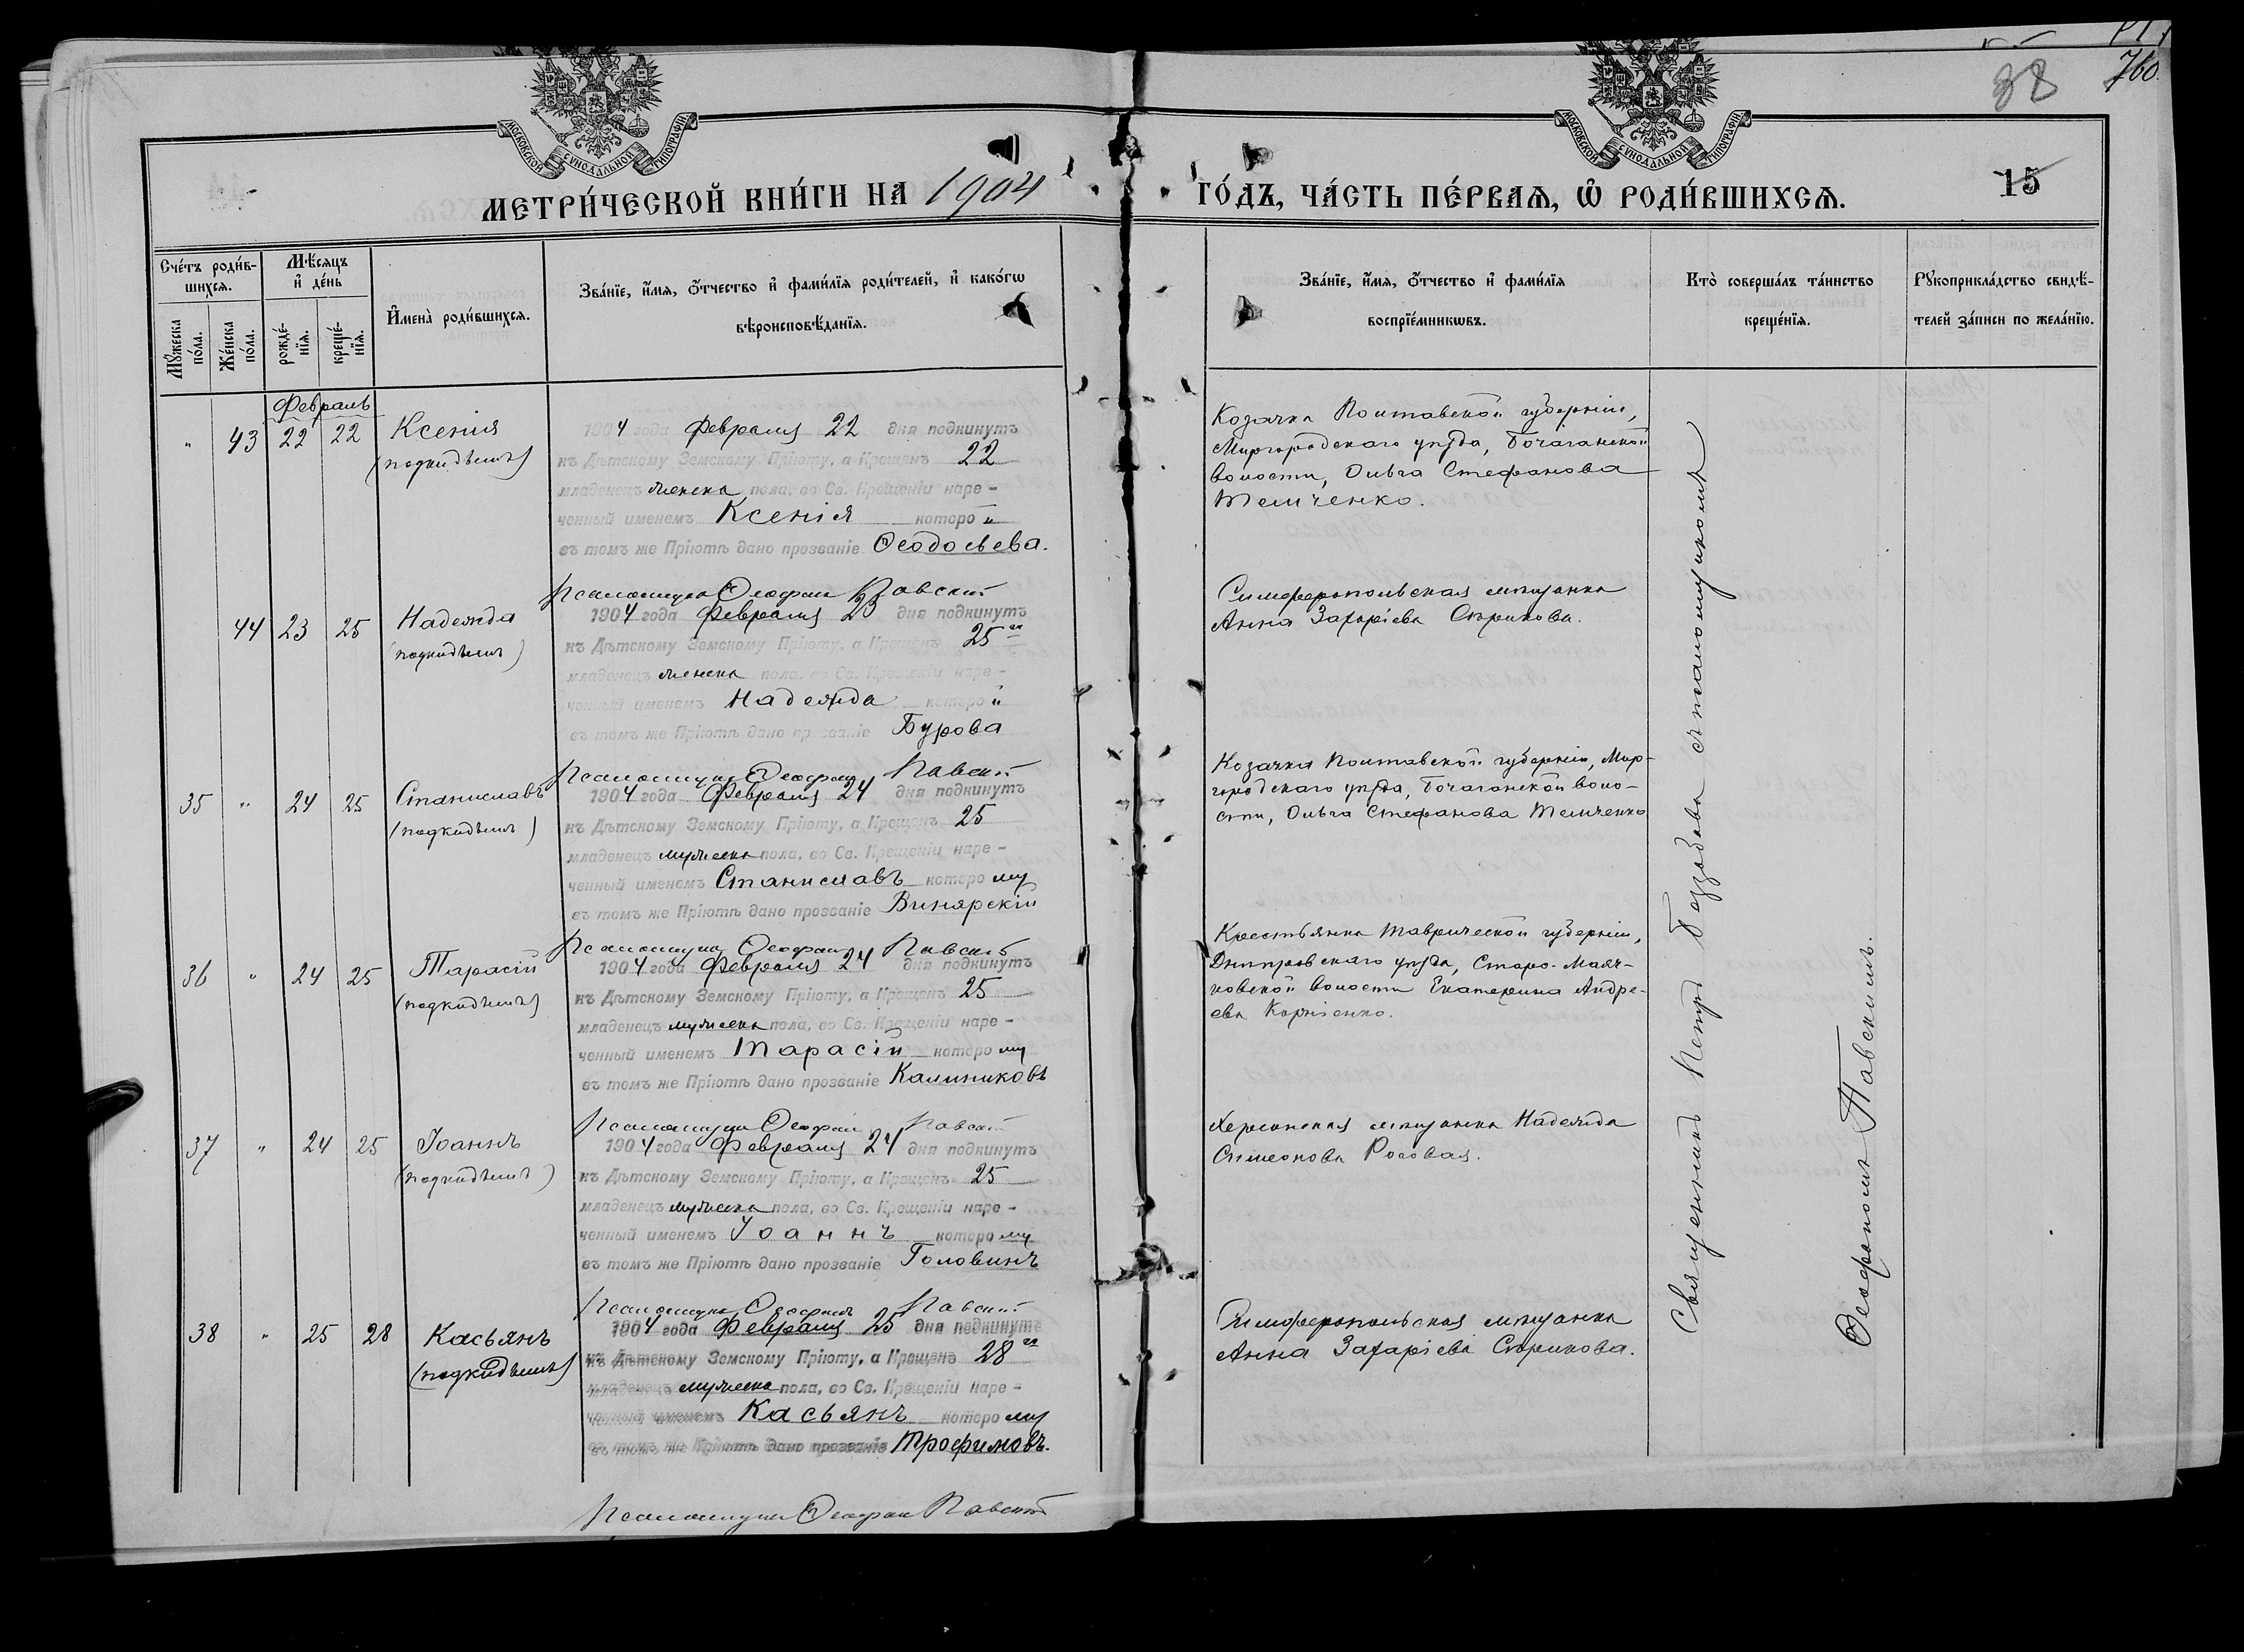 760.
38
МОСКОВСКОЙ СѴНОДАЛЬНОЙ ТИПОГРАФІИ
МОСКОВСКОЙ СѴНОДАЛЬНОЙ ТИПОГРАФІИ
МЕТРИ́ЧЕСКОЙ КНИ́ГИ НА 1904 ГО́ДЪ, ЧА́СТЬ ПЕ́РВАѦ, Ѡ҆ РОДИ́ВШИХСѦ.
15
Сче́тъ роди́в-
шихсѧ.
Мꙋ́жеска по́ла.
Же́нска по́ла.
Мѣ́сѧцъ и҆ де́нь
рожде́-нїѧ.
креще́-нїѧ.
И҆мена̀ роди́вшихсѧ.
Зва́нїе, и҆́мѧ, ѻ҆́тчество и҆ фами́лїѧ роди́телей, и҆ како́гѡ
вѣроисповѣ́данїѧ.
Зва́нїе, и҆́мѧ, ѻ҆́тчество и҆ фами́лїѧ
воспрїе́мникѡвъ.
Кто̀ соверша́лъ та́инство
креще́нїѧ.
Рꙋкоприкла́дство свидѣ́-
телей за́писи по жела́нїю.
Февраль
" 43 22 22 Ксенія
(подкидышъ)
1904 года Февраля 22 дня подкинутъ
къ Дѣтскому Земскому Пріюту, а Крещенъ 22
младенецъ женска пола, во Св. Крещеніи наре-
ченный именемъ Ксенія которой
въ томъ же Пріютѣ дано прозваніе Ѳеодосьева.
Козачка Полтавской губерніи,
Миргородскаго уѣзда, Бочаганской
волости, Ольга Стефанова
Темченко.
Псаломщикъ Ѳеофан Павскій
44 23 25 Надежда
(подкидышъ)
1904 года Февраля 23 дня подкинутъ
къ Дѣтскому Земскому Пріюту, а Крещенъ 25го
младенецъ женска пола, во Св. Крещеніи наре-
ченный именемъ Надежда которой
въ томъ же Пріютѣ дано прозваніе Бурова
Симферопольская мѣщанка
Анна Захаріева Сприкова.
Псаломщикъ Ѳеофан Павскій
35 " 24 25 Станиславъ
(подкидышъ)
1904 года Февраля 24 дня подкинутъ
къ Дѣтскому Земскому Пріюту, а Крещенъ 25
младенецъ мужеска пола, во Св. Крещеніи наре-
ченный именемъ Станиславъ которому
въ томъ же Пріютѣ дано прозваніе Винярскій
Козачка Полтавской губерніи, Мир-
городскаго уѣзда, Бочаганской воло-
сти, Ольга Стефанова Темченко
Псаломщикъ Ѳеофан Павскій
36 " 24 25 Тарасій
(подкидышъ)
1904 года Февраля 24 дня подкинутъ
къ Дѣтскому Земскому Пріюту, а Крещенъ 25
младенецъ мужеска пола, во Св. Крещеніи наре-
ченный именемъ Тарасій которому
въ томъ же Пріютѣ дано прозваніе Калиниковъ
Крестьянка Таврической губерніи,
Днѣпровскаго уѣзда, Старо-Маяч-
ковской волости Екатерина Андре-
ева Корніенко.
Псаломщикъ Ѳеофан Павскій
37 " 24 25 Іоаннъ
(подкидышъ)
1904 года Февраля 24 дня подкинутъ
къ Дѣтскому Земскому Пріюту, а Крещенъ 25
младенецъ мужеска пола, во Св. Крещеніи наре-
ченный именемъ Іоаннъ которому
въ томъ же Пріютѣ дано прозваніе Головинъ
Херсонская мѣщанка Надежда
Симеонова Росовая.
Псаломщикъ Ѳеофанъ Павскій
38 " 25 28 Касьянъ
(подкидышъ)
1904 года Февраля 25 дня подкинутъ
къ Дѣтскому Земскому Пріюту, а Крещенъ 28го
младенецъ мужеска пола, во Св. Крещеніи наре-
ченный именемъ Касьянъ которому
въ томъ же Пріютѣ дано прозваніе Трофимовъ.
Симферопольская мѣщанка
Анна Захаріева Сприкова.
Псаломщикъ Ѳеофан Павскій
Священникъ Петръ съ псаломщикомъ
Ѳеофаномъ Павскимъ.